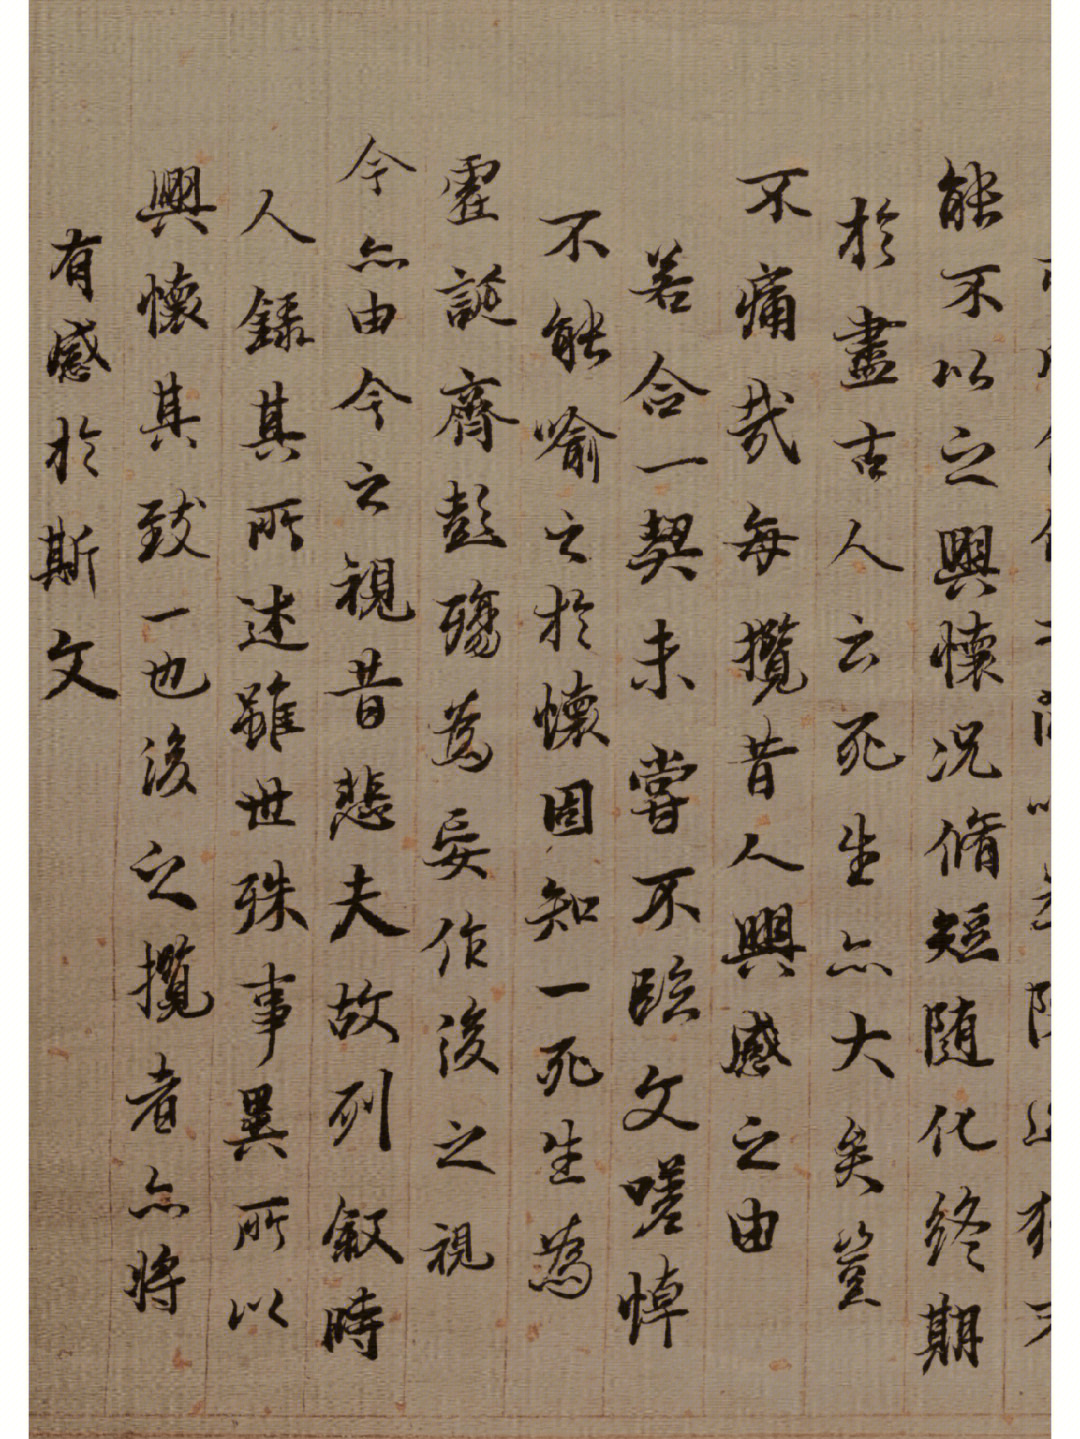 能不以之興懷况脩短随化終期
於盡古人云死生亦大矣豈
不痛哉每攬昔人興感之由
若合一契未嘗不臨文嗟悼
不能喻之於懷固知一死生為
虛誕齊彭殤為妄作後之視
今亦由今之視昔悲夫故列叙時
人錄其所述雖世殊事異所以
興懷其致一也後之攬者亦將
有感於斯文